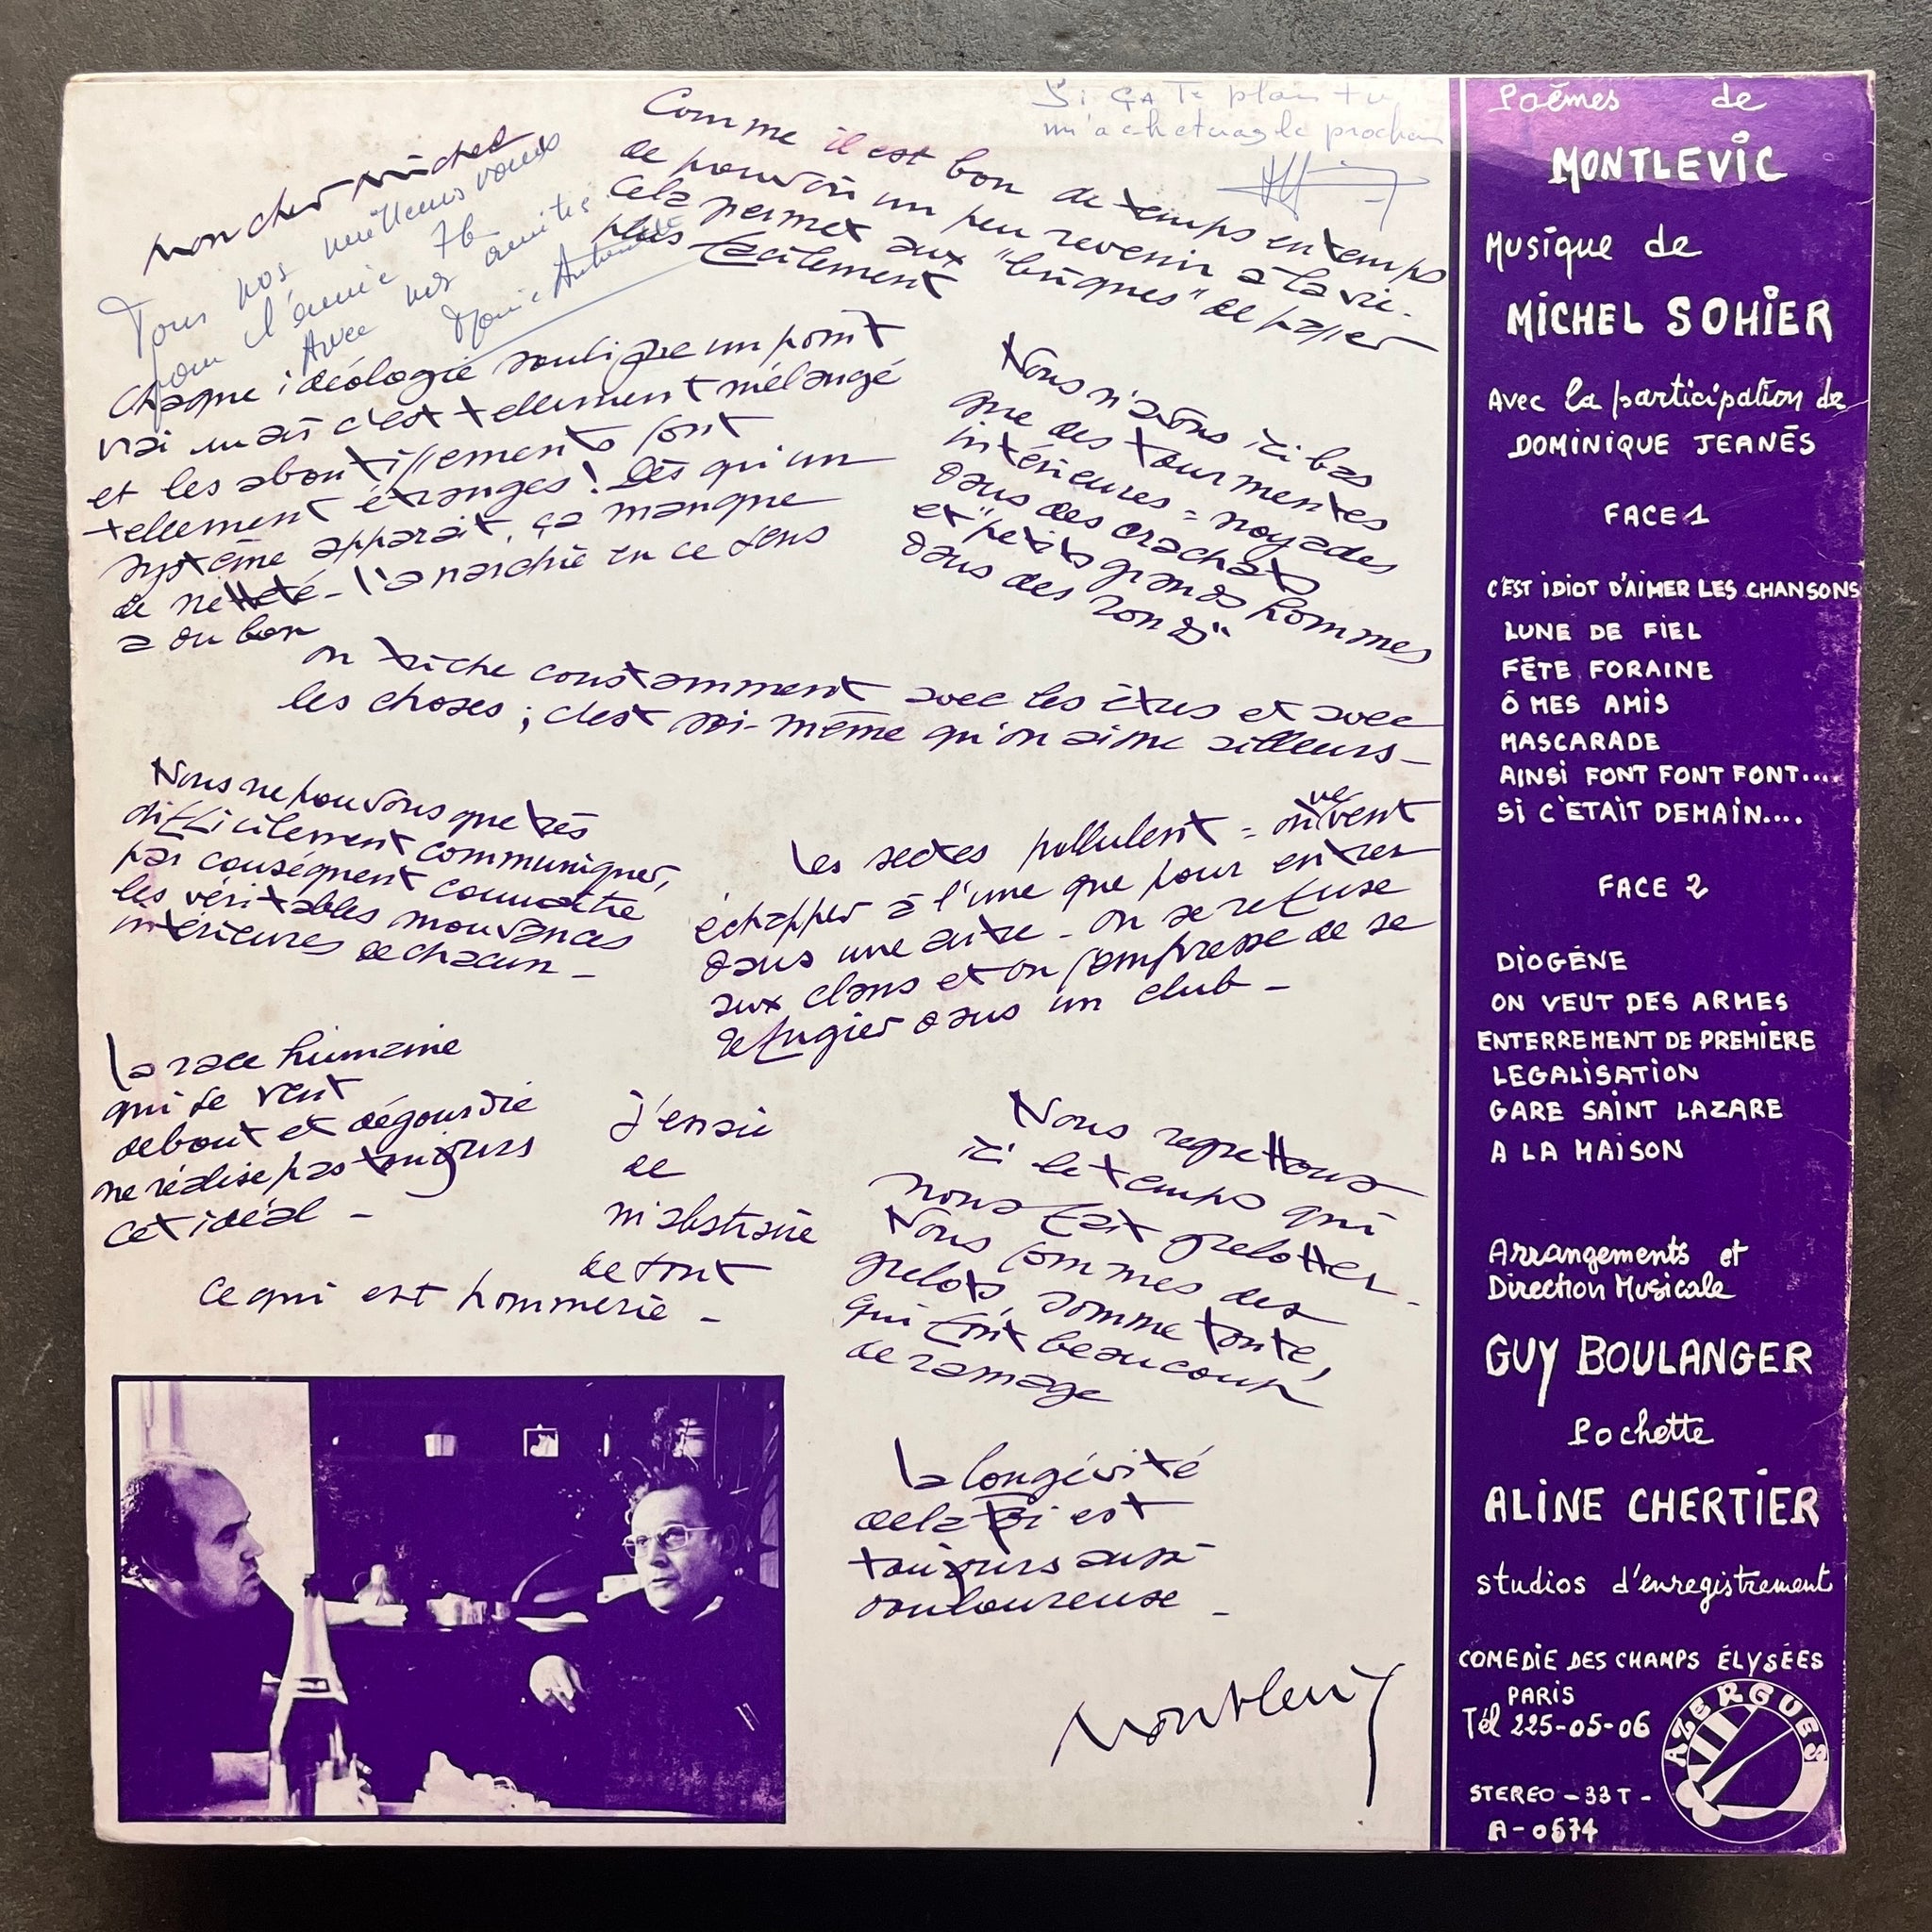 mon cher michel
Tous nos meilleurs voeux
pour l'année 76
Avec nos amitiés
Marie Antoinette
Comme il est bon de temps en temps
de pouvoir un peu revenir à la vie.
Cela permet aux "briques" de payer
plus facilement
Si ça te plait tu
m'acheteras le prochain
Chaque idéologie souligne un point
vrai mais c'est tellement mélangé
et les aboutissements sont
tellement étranges! Dès qu'un
système apparait, ça manque
de netteté - l'anarchie en ce sens
a du bon
Nous n'avons ici bas
que des tourmentes
intérieures = noyades
dans des crachats
et "petits grands hommes
dans des ronds"
on triche constamment avec les êtres et avec
les choses; c'est soi-même qu'on aime ailleurs -
Nous ne pouvons que très
difficilement communiquer,
par conséquent connaitre
les véritables mouvances
intérieures de chacun -
les sectes pullulent = on ne veut
échapper à l'une que pour entrer
dans une autre - on se refuse
aux clans et on s'empresse de se
réfugier dans un club -
la race humaine
qui se veut
debout et dégourdie
ne réalise pas toujours
cet idéal -
J'essaie
de
m'abstraire
de tout
ce qui est hommerie -
Nous regrettons
ici le temps qui
nous fait grelotter -
Nous sommes des
grelots, somme toute,
qui font beaucoup
de ramage
la longévité
de la foi est
toujours aussi
douloureuse -
Montlevic
Poèmes de
MONTLEVIC
Musique de
MICHEL SOHIER
Avec la participation de
DOMINIQUE JEANÈS
FACE 1
C'EST IDIOT D'AIMER LES CHANSONS
LUNE DE FIEL
FÊTE FORAINE
Ô MES AMIS
MASCARADE
AINSI FONT FONT FONT....
SI C'ETAIT DEMAIN....
FACE 2
DIOGÈNE
ON VEUT DES ARMES
ENTERREMENT DE PREMIÈRE
LEGALISATION
GARE SAINT LAZARE
A LA MAISON
Arrangements et
Direction Musicale
GUY BOULANGER
Pochette
ALINE CHERTIER
studios d'enregistrement
COMEDIE DES CHAMPS ÉLYSÉES
PARIS
Tél 225-05-06
AZERGUES
STEREO - 33 T -
A - 0574